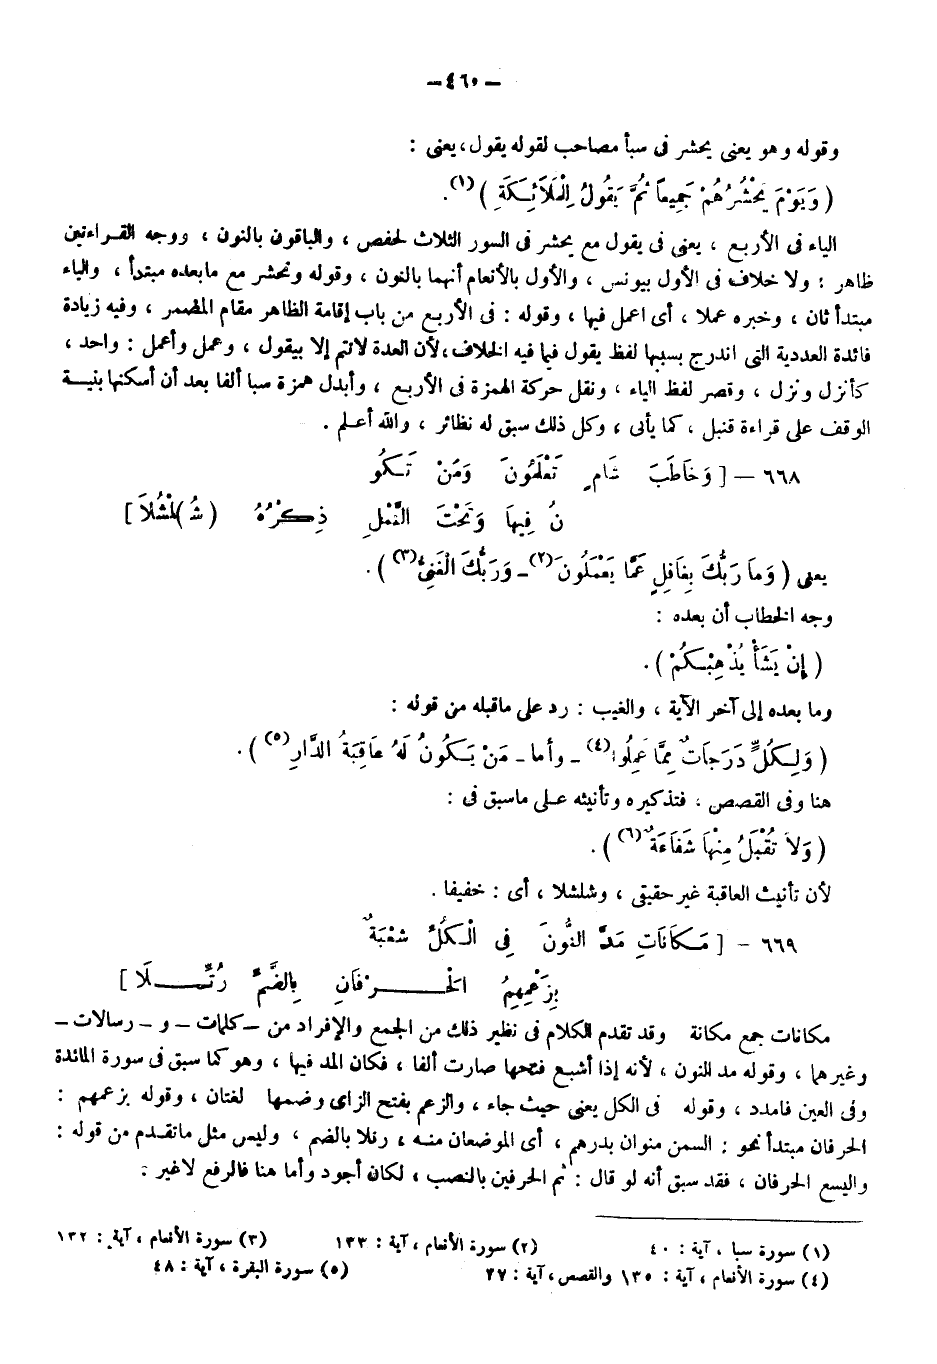 – ٤٦٠ –
وقوله وهو يعنى يحشر فى سبأ مصاحب لقوله يقول، يعنى :
( وَيَوْمَ يَحْشُرُهُمْ جَمِيعاً ثُمَّ يَقُولُ لِلْمَلَائِكَةِ )(١).
الياء فى الأربع ، يعنى فى يقول مع يحشر فى السور الثلاث لحفص ، والباقون بالنون ، ووجه القراءتين
ظاهر : ولا خلاف فى الأول بيونس ، والأول بالأنعام أنهما بالنون ، وقوله ونحشر مع مابعده مبتدأ ، والياء
مبتدأ ثان ، وخبره عملا ، أى اعمل فيها ، وقوله : فى الأربع من باب إقامة الظاهر مقام المضمر ، وفيه زيادة
فائدة العددية التى اندرج بسببها لفظ يقول فيما فيه الخلاف، لأن العدة لاتتم إلا بيقول ، وعمل وأعمل : واحد ،
كأنزل ونزل ، وقصر لفظ الياء ، ونقل حركة الهمزة فى الأربع ، وأبدل همزة سبا ألفا بعد أن أسكنها بنية
الوقف على قراءة قنبل ، كما يأتى ، وكل ذلك سبق له نظائر ، والله أعلم .
٦٦٨ – [ وَخَاطَبَ شَامٍ تَعْلَمُونَ وَمَنْ تَكُو
نُ فِيهَا وَتَحْتَ النَّمْلِ ذِكْرُهُ (شُ)لْشُلاَ ]
يعنى ( وَمَا رَبُّكَ بِغَافِلٍ عَمَّا يَعْمَلُونَ(٢) – وَرَبُّكَ الْغَنِىُّ(٣) ).
وجه الخطاب أن بعده :
( إِنْ يَشَأْ يُذْهِبْكُمْ ).
وما بعده إلى آخر الآية ، والغيب : رد على ماقبله من قوله :
( وَلِكُلٍّ دَرَجَاتٌ مِمَّا عَمِلُوا(٤) – وأما – مَنْ يَكُونُ لَهُ عَاقِبَةُ الدَّارِ(٥) ).
هنا وفى القصص ، فتذكيره وتأنيثه على ماسبق فى :
( وَلاَ تُقْبَلُ مِنْهَا شَفَاعَةٌ(٦) ).
لأن تأنيث العاقبة غير حقيقى ، وشلشلا ، أى : خفيفا .
٦٦٩ – [ مَكَانَاتِ مَدَّ النُّونَ فِى الْكُلِّ شُعْبَةٌ
بِزَعْمِهِمُ الْحَرْفَانِ بِالضَّمِّ رُتِّلَا ]
مكانات جمع مكانة وقد تقدم الكلام فى نظير ذلك من الجمع والإفراد من – كلمات – و – رسالات –
وغيرهما ، وقوله مد النون ، لأنه إذا أشبع فتحها صارت ألفا ، فكان المد فيها ، وهو كما سبق فى سورة المائدة
وفى العين فامدد ، وقوله فى الكل يعنى حيث جاء ، والزعم بفتح الزاى وضمها لغتان ، وقوله بزعمهم :
الحرفان مبتدأ نحو : السمن منوان بدرهم ، أى الموضعان منه ، رتلا بالضم ، وليس مثل ماتقدم من قوله :
واليسع الحرفان ، فقد سبق أنه لو قال : ثم الحرفين بالنصب ، لكان أجود وأما هنا فالرفع لاغير :
(١) سورة سبا ، آية : ٤٠ (٢) سورة الأنعام ، آية : ١٣٣ (٣) سورة الأنعام ، آية : ١٣٢
(٤) سورة الأنعام ، آية : ١٣٥ والقصص، آية : ٣٧ (٥) سورة البقرة ، آية : ٤٨